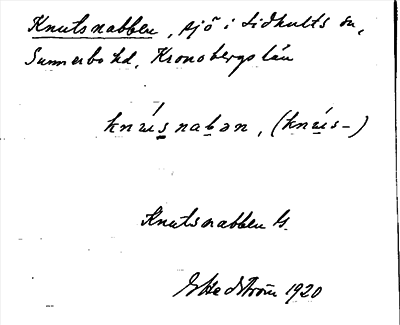 Knutsnabben, sjö i Lidhults sn,
Sunnerbo hd, Kronobergs län
knúisnabən, (knúis-)
Knutsnabben G.
G Hedström 1920